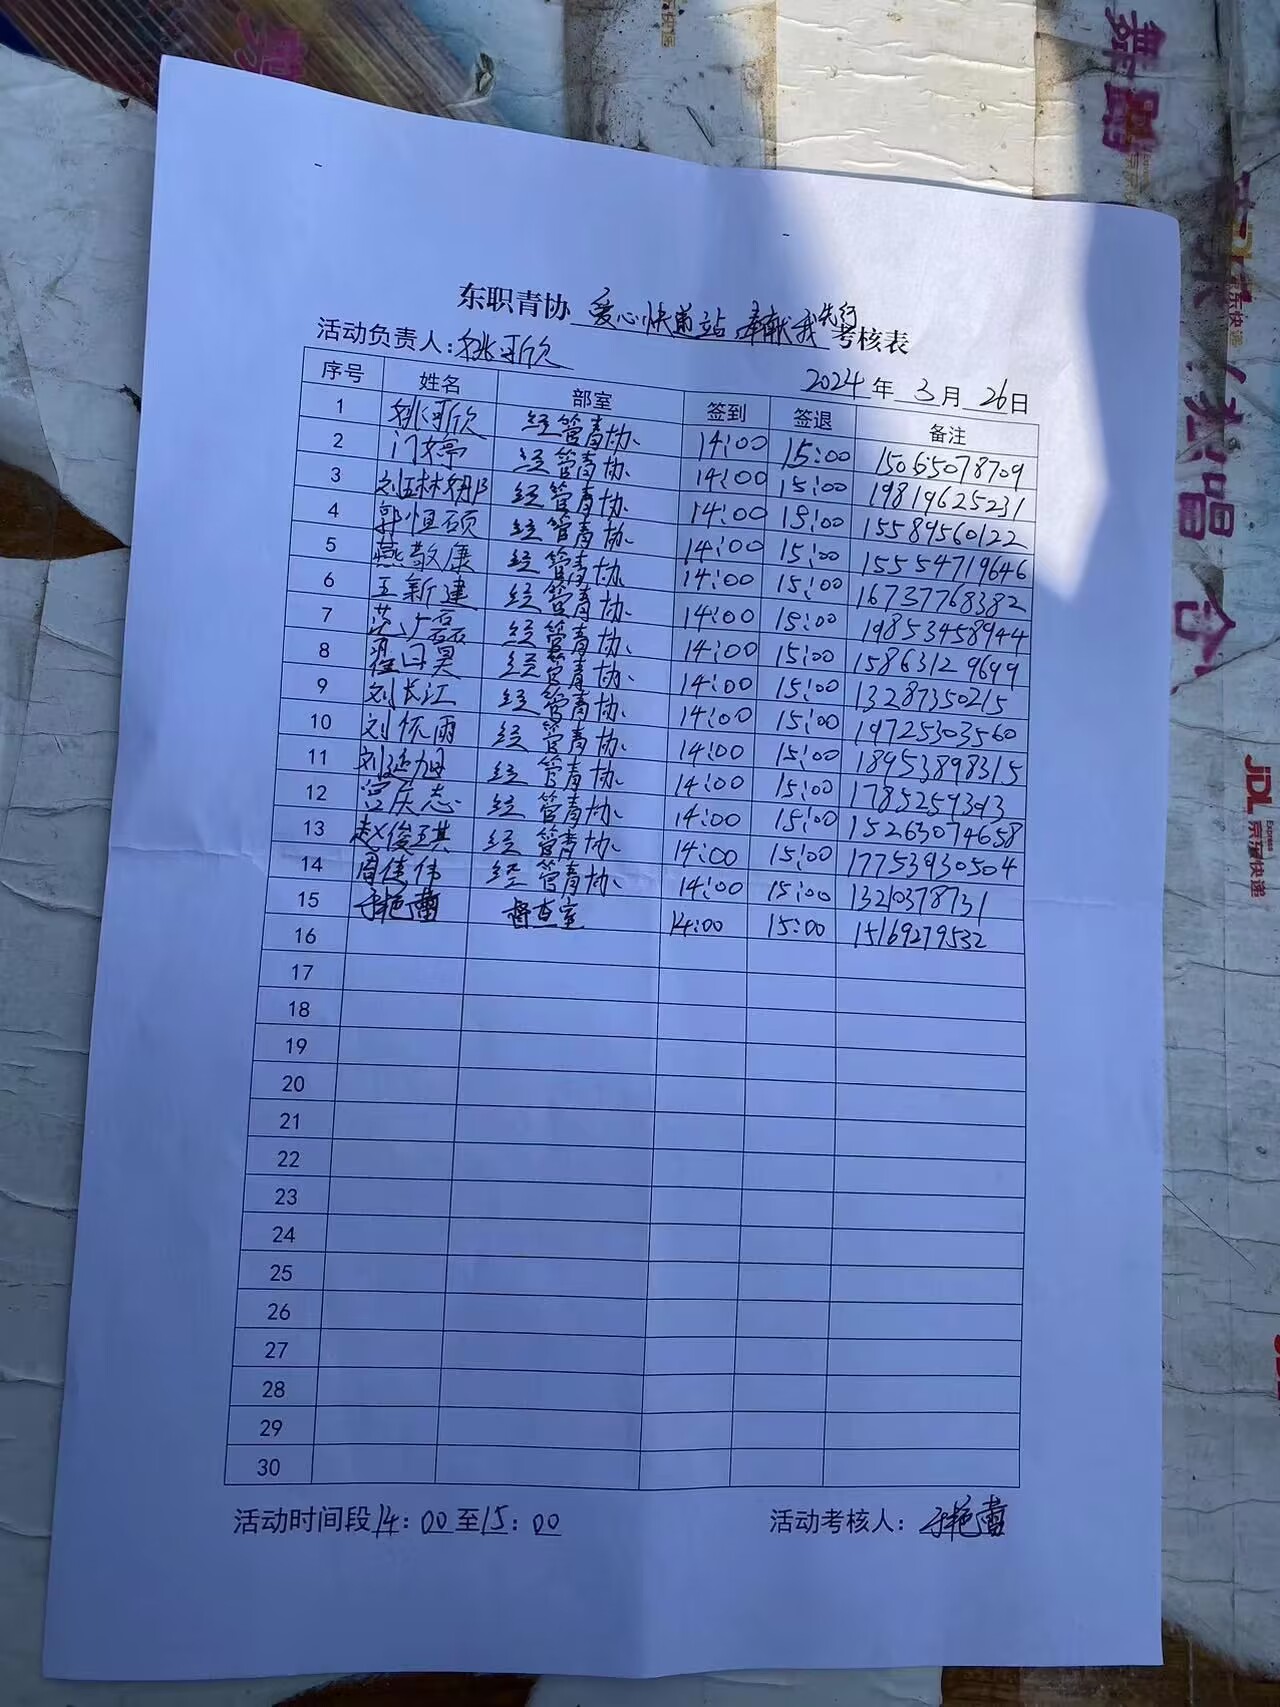 东职青协 爱心快递站 奉献我先行 考核表
活动负责人:姚河欣
2024年 3月 26日
序号 姓名 部室 签到 签退 备注
1 姚河欣 经管青协 14:00 15:00 15065078709
2 门婷 经管青协 14:00 15:00 19819625231
3 经管青协 14:00 15:00 15589560122
4 郭恒硕 经管青协 14:00 15:00 15554719646
5 燕敬康 经管青协 14:00 15:00 16737768382
6 王新建 经管青协 14:00 15:00 19853458944
7 经管青协 14:00 15:00 15863129699
8 经管青协 14:00 15:00 13287350215
9 刘长江 经管青协 14:00 15:00 19725303560
10 刘怀雨 经管青协 14:00 15:00 18953898315
11 经管青协 14:00 15:00
12 宫庆志 经管青协 14:00 15:00 15263074658
13 赵俊琪 经管青协 14:00 15:00 17753930504
14 周佳伟 经管青协 14:00 15:00 13210378731
15 于艳蕾 督查室 14:00 15:00 15169279532
16
17
18
19
20
21
22
23
24
25
26
27
28
29
30
活动时间段14:00至15:00 活动考核人:于艳蕾
舞蹈
唱
JDL 京东快递
Express